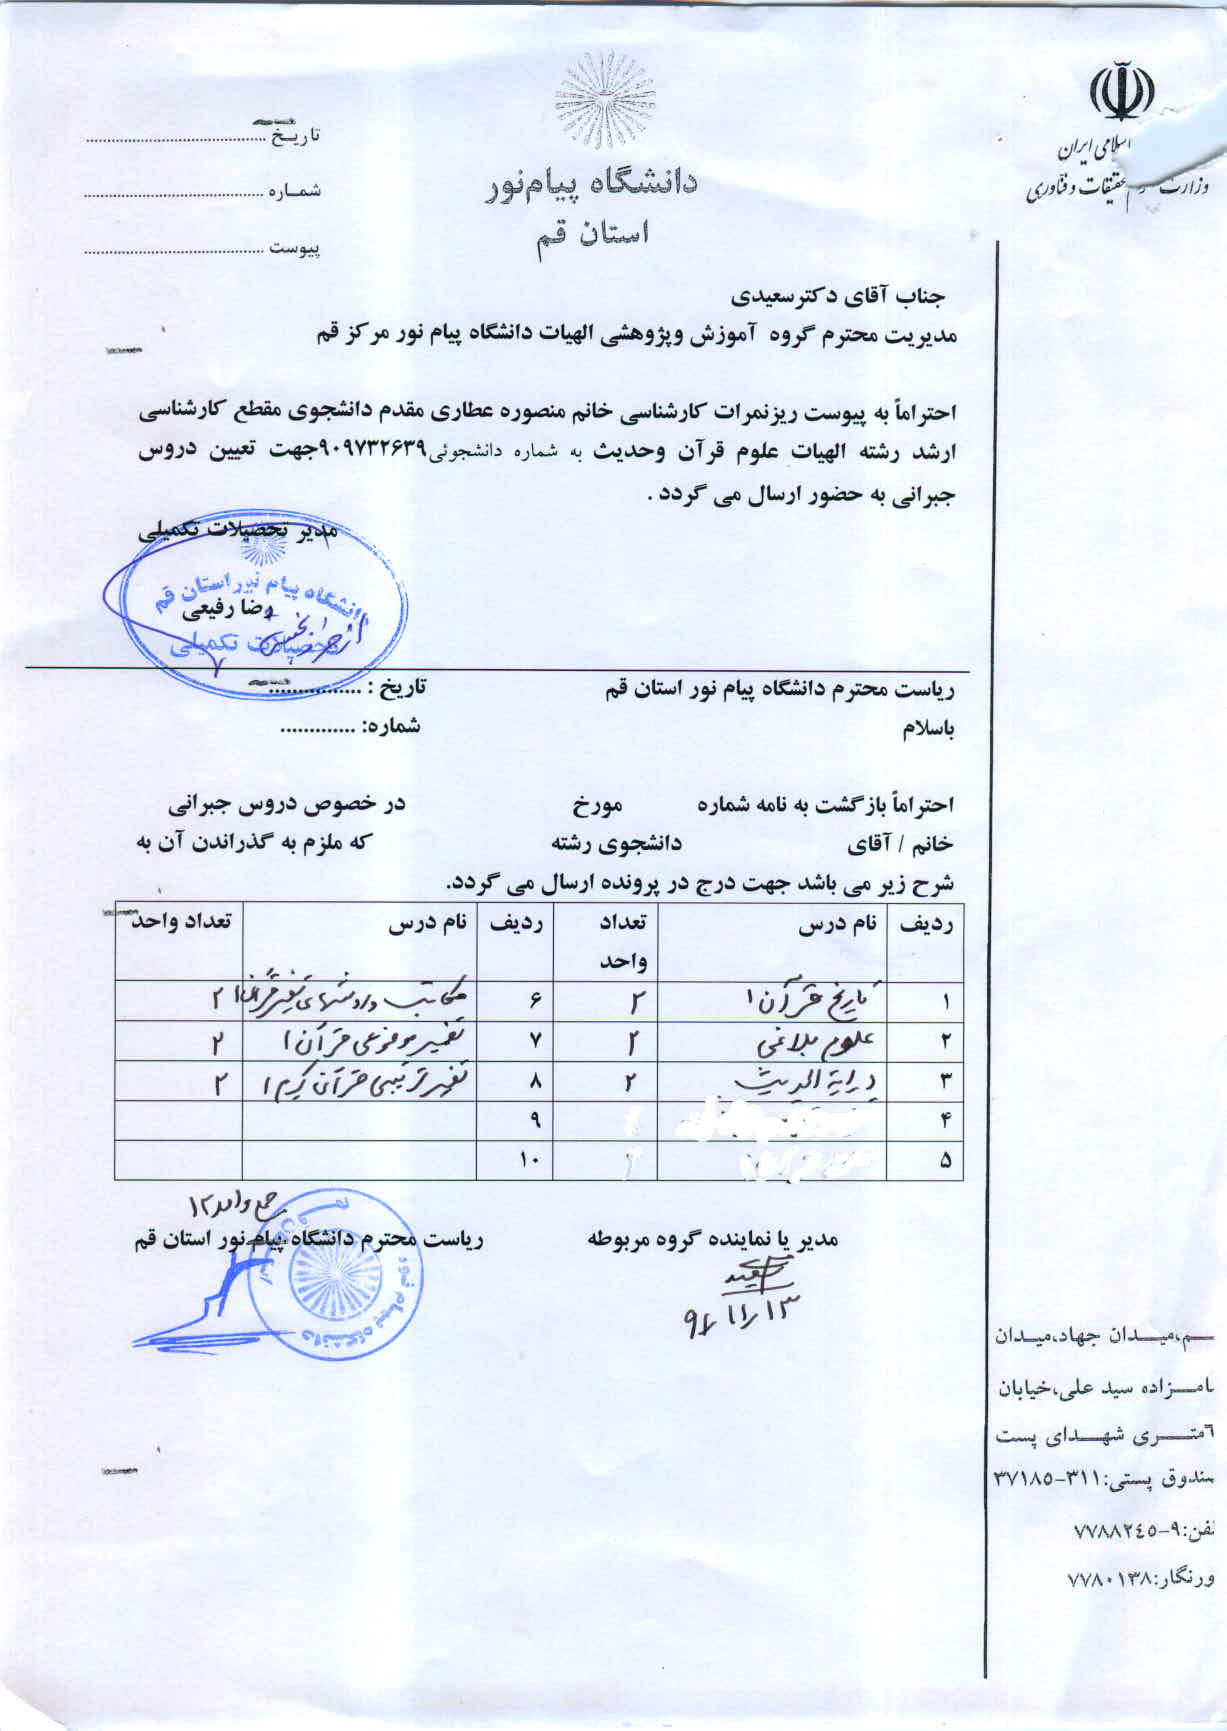 اسلامی ایران
وزارت علوم تحقیقات و فنّاوری
دانشگاه پیام‌نور
استان قم
تاریخ ......................
شماره ......................
پیوست ......................
جناب آقای دکترسعیدی
مدیریت محترم گروه آموزش وپژوهشی الهیات دانشگاه پیام نور مرکز قم
احتراماً به پیوست ریزنمرات کارشناسی خانم منصوره عطاری مقدم دانشجوی مقطع کارشناسی
ارشد رشته الهیات علوم قرآن وحدیث به شماره دانشجوئی۹۰۹۷۳۲۶۳۹جهت تعیین دروس
جبرانی به حضور ارسال می گردد .
مدیر تحصیلات تکمیلی
دانشگاه پیام نور استان قم
رضا رفیعی
تحصیلات تکمیلی
ریاست محترم دانشگاه پیام نور استان قم تاریخ : ................
باسلام شماره: .............
احتراماً بازگشت به نامه شماره مورخ در خصوص دروس جبرانی
خانم / آقای دانشجوی رشته که ملزم به گذراندن آن به
شرح زیر می باشد جهت درج در پرونده ارسال می گردد.
ردیف نام درس تعداد واحد ردیف نام درس تعداد واحد
۱ تاریخ قرآن ۱ ۲ ۶ مکاتب و روشهای تفسیر قرآن ۱ ۲
۲ علوم بلاغی ۲ ۷ تفسیر موضوعی قرآن ۱ ۲
۳ درایة الحدیث ۲ ۸ تفسیر ترتیبی قرآن کریم ۱ ۲
۴ ۹
۵ ۱۰
جمع واحد ۱۲
مدیر یا نماینده گروه مربوطه ریاست محترم دانشگاه پیام نور استان قم
سعیدی
۹۱/۱۱/۱۳
دانشگاه پیام نور
ـم،میـدان جهاد،میدان
امـزاده سید علی،خیابان
٦متـری شهـدای پست
صندوق پستی:۳۱۱-۳۷۱۸۵
لفن:۹-۷۷۸۸۲٤۵
ورنگار:۷۷۸۰۱۳۸